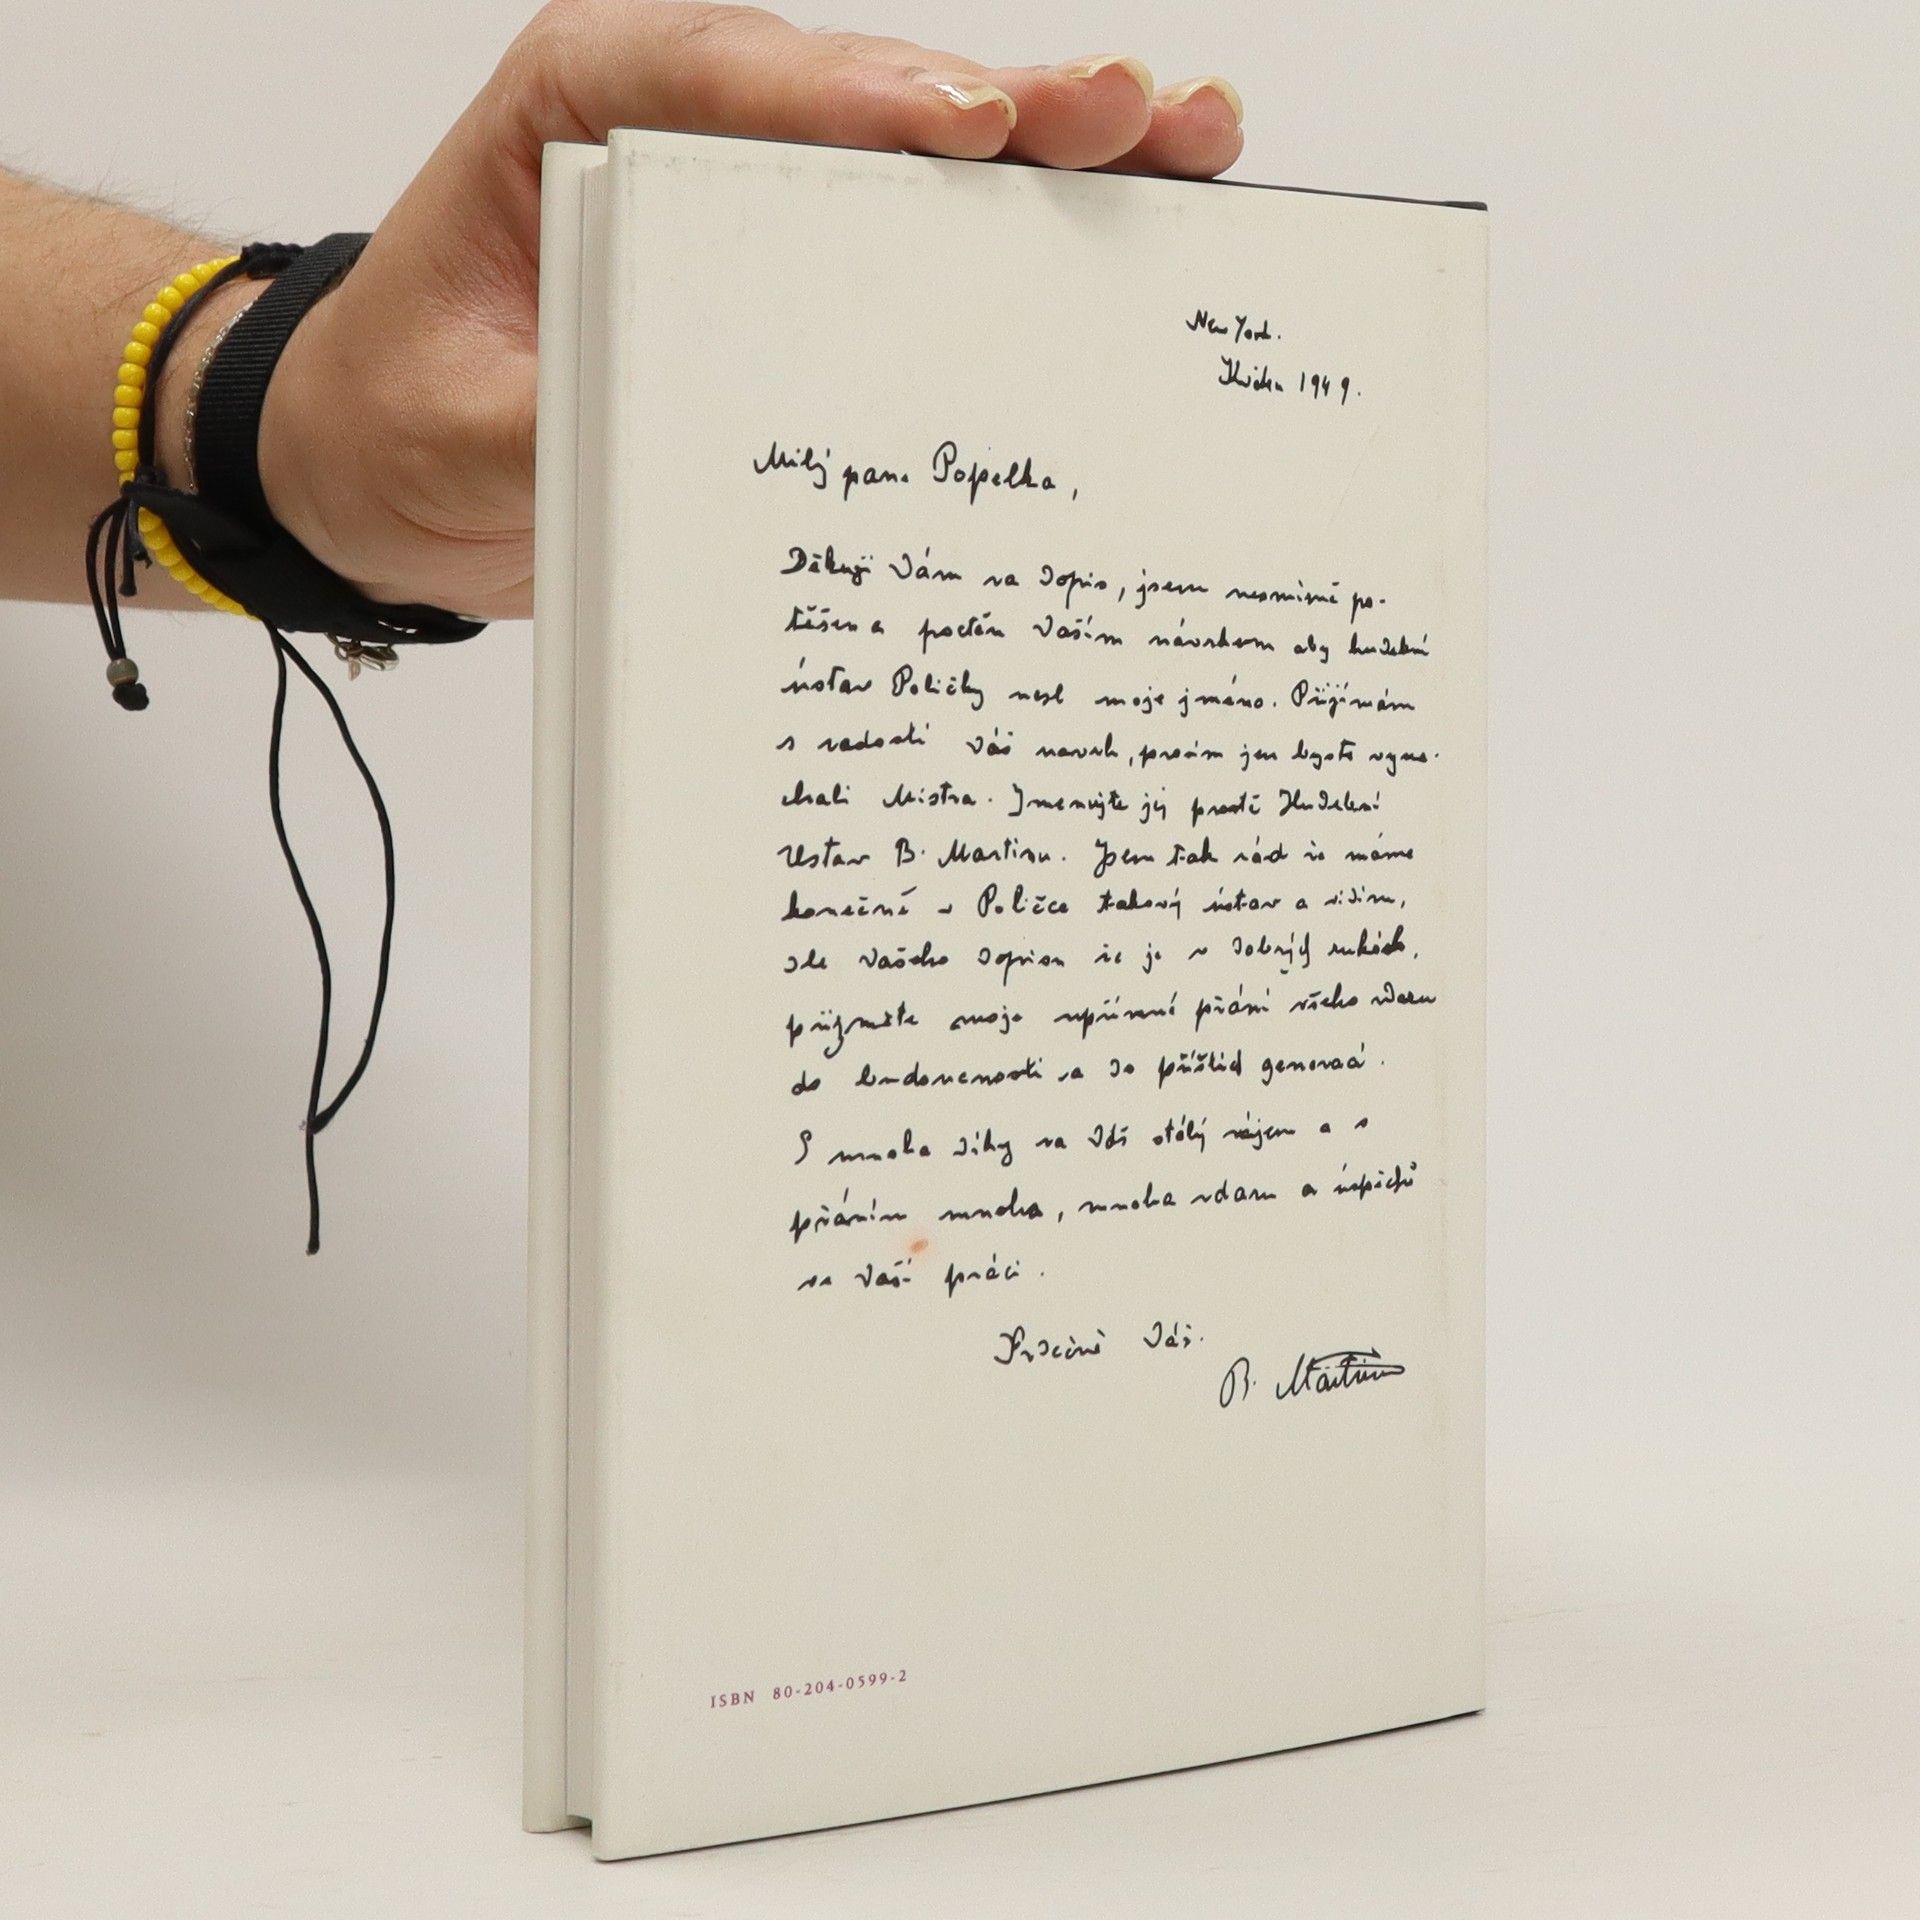 New York.
Květen 1949.
Milý pane Popelka,
Děkuji Vám za dopis, jsem nesmírně po-
těšen a poctěn Vaším návrhem aby hudební
ústav Poličky nesl moje jméno. Přijímám
s radostí Váš navrh, prosím jen byste vyne-
chali Mistra. Jmenujte jej prostě Hudební
Ustav B. Martinu. Jsem tak rád že máme
konečně v Poličce takový ústav a vidím,
dle Vašeho dopisu že je v dobrých rukách,
přijměte moje upřímné přání všeho zdaru
do budoucnosti a do příštích generací.
S mnoha díky za Váš stálý zájem a s
přáním mnoha, mnoha zdaru a úspěchů
ve Vaší práci.
Srdečně Váš.
B. Martinu
ISBN 80-204-0599-2